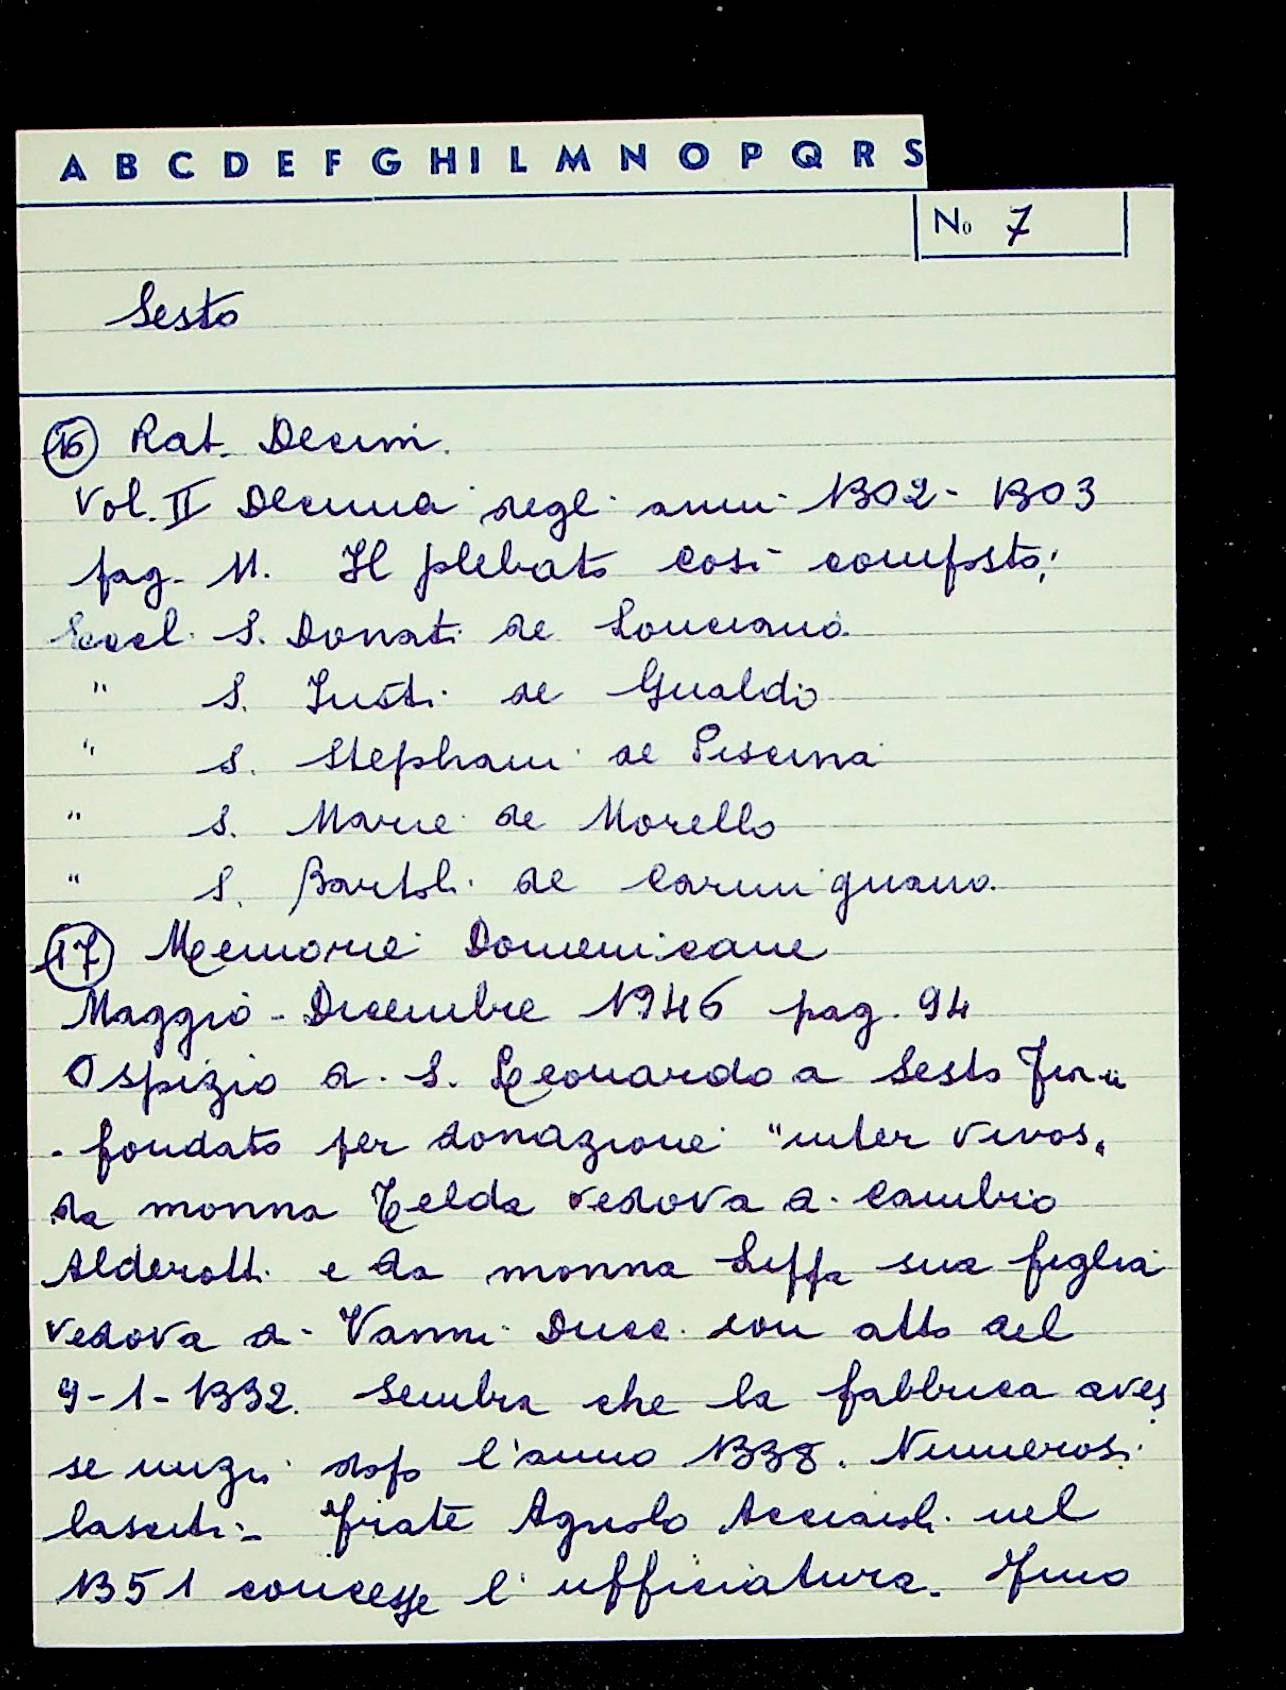 A B C D E F G H I L M N O P Q R S
No 7
Sesto
16 Rat. Decim.
Vol. II Decima degli anni 1302 - 1303
pag. 11. Il plebato così composto:
Eccl. S. Donati de Lonciano
" S. Justi de Gualdo
" S. Stephani de Piscina
" S. Marie de Morello
" S. Bartoli de Carmignano.
17 Memorie Domenicane
Maggio - Dicembre 1946 pag. 94
Ospizio di S. Leonardo a Sesto
- fondato per donazione "inter vivos"
da monna Telda vedova di Cambio
Alderotti e da monna Lippa sua figlia
vedova di Vanni Ducci con atto del
9-1-1332. Sembra che la fabbrica aves
se inizi dopo l'anno 1338. Numerosi
lasciti - Frate Agnolo Acciaioli nel
1351 concesse l'ufficiatura. Fino